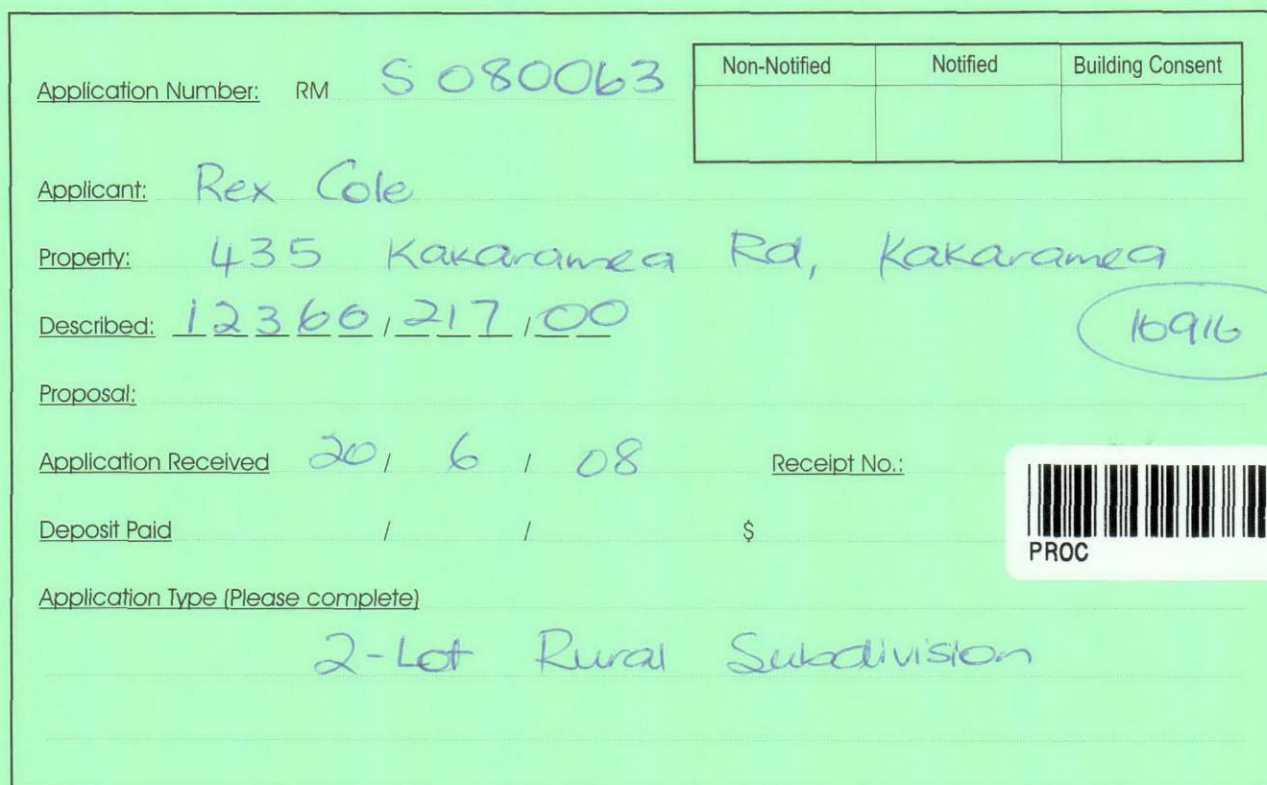 Application Number: RM S 080063
Non-Notified Notified Building Consent
Applicant: Rex Cole
Property: 435 Kakaramea Rd, Kakaramea
Described: 12360/217/00
16916
Proposal:
Application Received 20/ 6 / 08 Receipt No.:
Deposit Paid / / $
PROC
Application Type (Please complete)
2-Lot Rural Subdivision